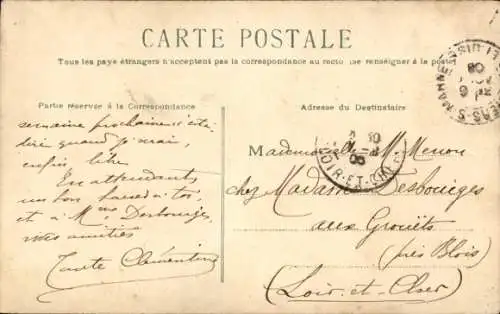 CARTE POSTALE
Tous les pays étrangers n'acceptent pas la correspondance au recto (se renseigner à la poste)
Partie réservée à la Correspondance
Adresse du Destinataire
semaine prochaine c'est à
dire quand j'irai,
enfin libre
En attendant,
un bon baiser à toi,
et à Mme Desbouiges
mes amitiés
Tante Clémentine
Mademoiselle M. Menon
chez Madame Desbouiges
aux Grouëts
(près Blois)
(Loir-et-Cher)
LOIR-ET-CHER